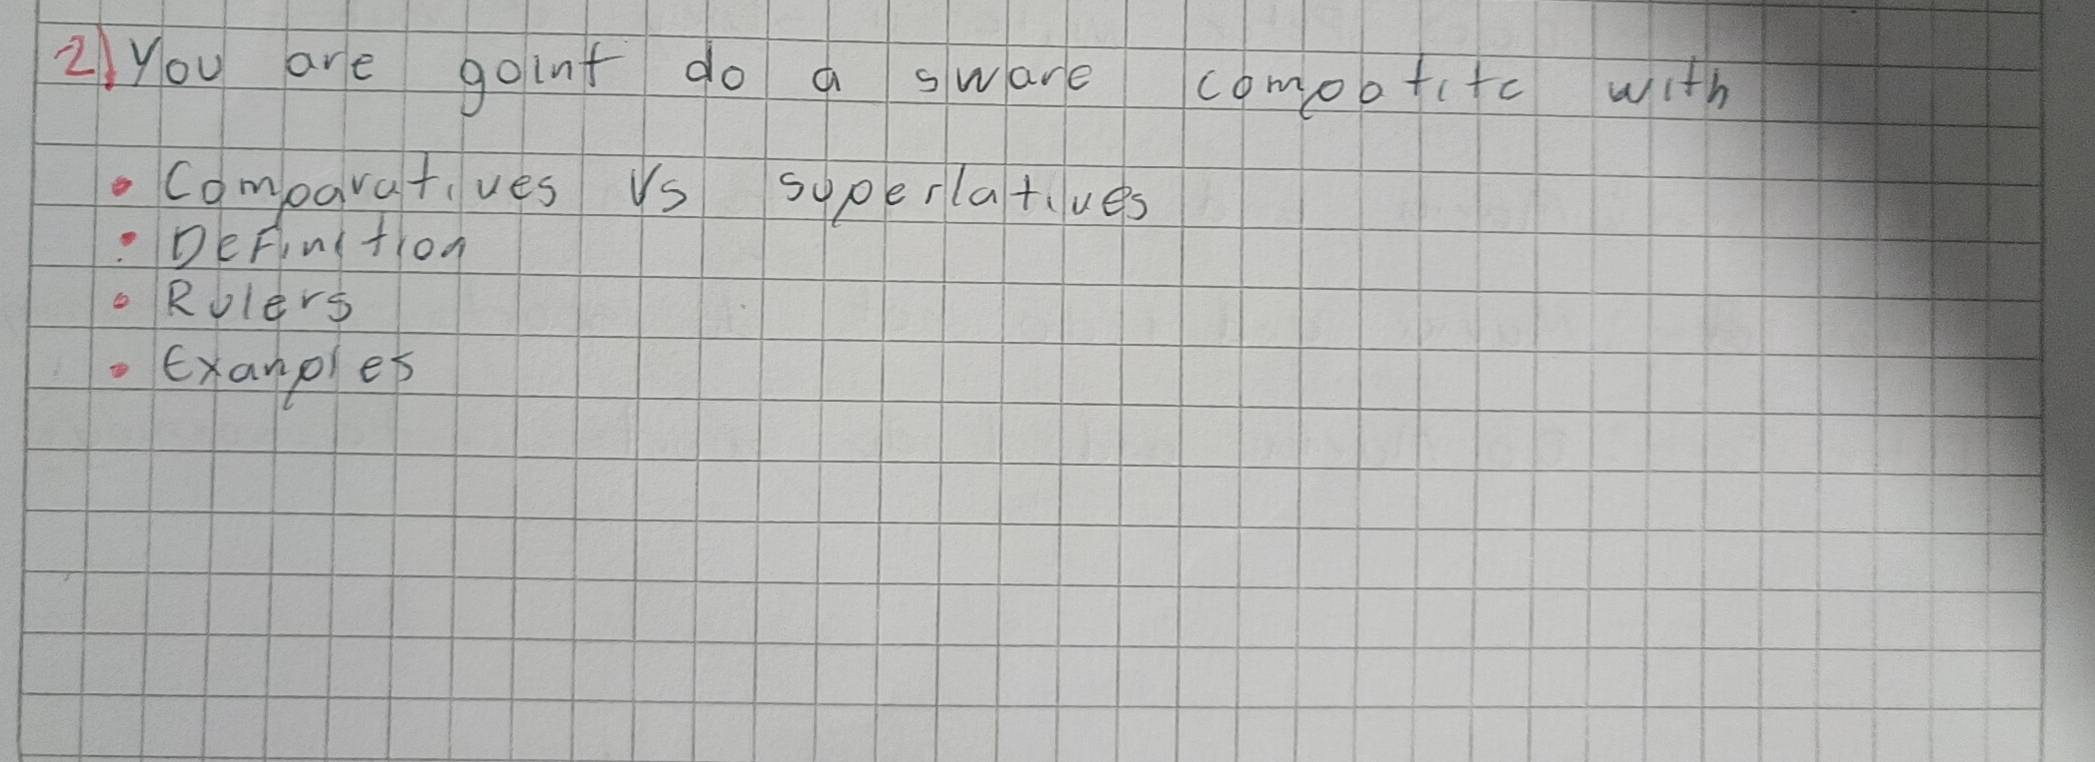 2) You are goint do a sware comoatite with
• Comparatives Vs superlatives
• Definition
• Rulers
• Exanples